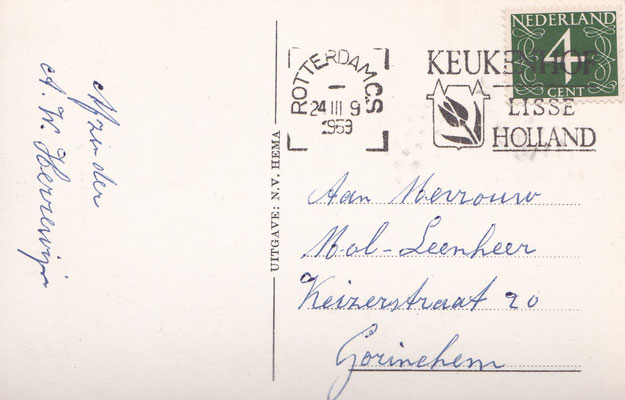 Afzender
A. W.
ROTTERDAM C.S
24 III 9
1953
KEUKENHOF
LISSE
HOLLAND
NEDERLAND
4
CENT
UITGAVE: N.V. HEMA
Aan Mevrouw
Mol-Leenheer
Keizerstraat 20
Gorinchem